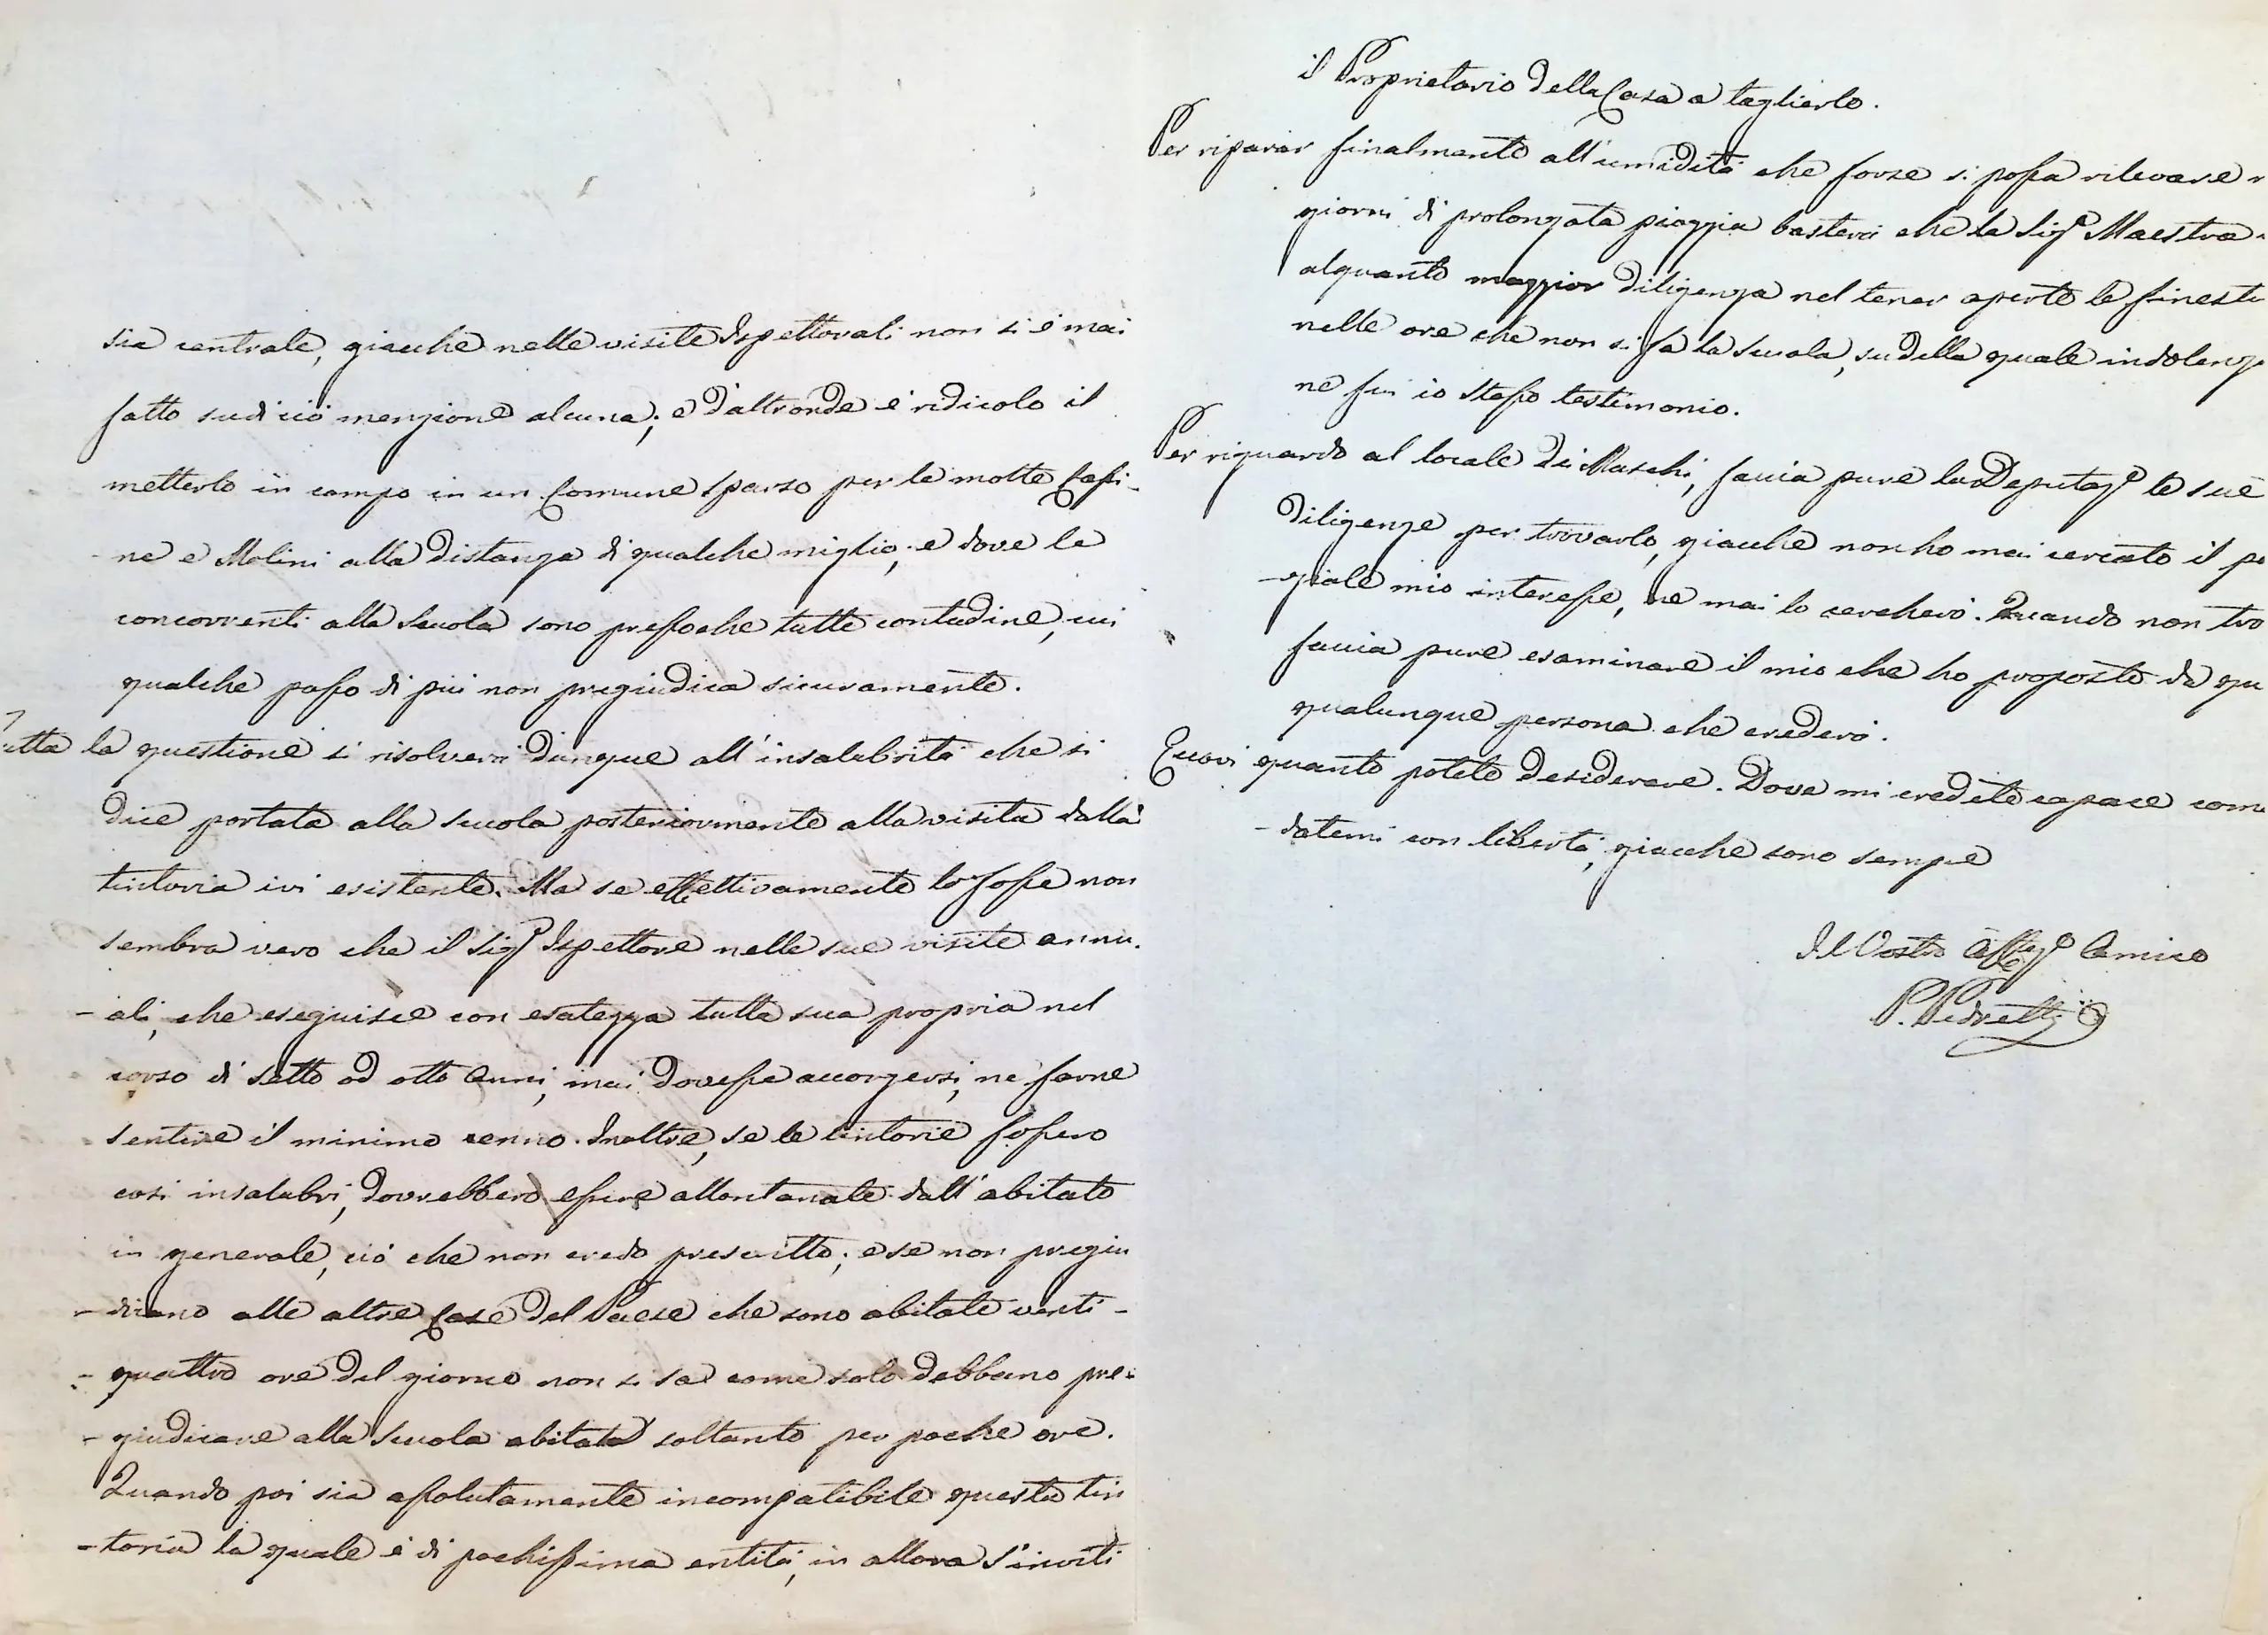 sia centrale, giacchè nelle visite Ispettorali non si è mai
fatto su di ciò menzione alcuna; e d'altronde è ridicolo il
metterlo in campo in un Comune sparso per le molte Cassi-
ne e Molini alla distanza di qualche miglio; e dove le
concorrenti alla Scuola sono pressochè tutte contadine, cui
qualche passo di più non pregiudica sicuramente.
Tutta la questione si risolverà dunque all'insalubrità che si
dice portata alla scuola posteriormente alla visita dalla
tintoria ivi esistente. Ma se effettivamente lo fosse non
sembra vero che il Sigr Ispettore nelle sue visite annu-
- ali, che eseguisce con esatezza tutta sua propria nel
corso di sette od otto Anni, mai dovesse accorgersi, nè farne
sentire il minimo cenno. Inoltre, se le tintorie fossero
così insalubri, dovrebbero essere allontanate dall'abitato
in generale, ciò che non credo prescritto; e se non pregiu
- dicano alle altre Case del Paese che sono abitate venti-
- quattro ore del giorno non si sa come solo debbano pre-
- giudicare alla Scuola abitata soltanto per poche ore.
Quando poi sia assolutamente incompatibile questa tin
- toria la quale è di pochissima entità, in allora s'inviti
il Proprietario della Casa a toglierlo.
Per riparar finalmente all'umidità che forse si possa rilevare
giorni di prolongata pioggia basterà che la Sigra Maestra
alquanto maggior diligenza nel tener aperte le finest
nelle ore che non si fa la Scuola, su della quale indolenz
ne fui io stesso testimonio.
Per riguardo al locale di Maschi, faccia pure la Deputaze le sue
diligenze per trovarlo, giacchè non ho mai cercato il pa
- ziale mio interesse, nè mai lo cercherò. Quando non tro
faccia pure esaminare il mio che ho proposto da qu
qualunque persona che crederà.
Eccovi quanto potete desiderare. Dove mi credete capace com
- datemi con libertà, giacchè sono sempre
Il Vostro Affezo Amico
P. Pedretti